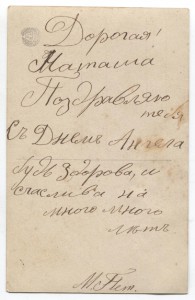 Дорогая!
Наташа
Поздравляю
тебя
Съ Днемъ Ангела
будь здорова, и
счаслива на
много много
лѣтъ
М. Пет.